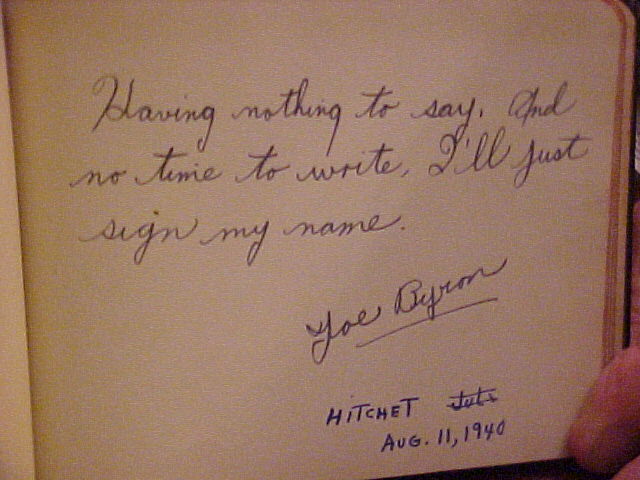 Having nothing to say. And
no time to write, I'll just
sign my name.
Joe Byron
HITCHET
AUG. 11, 1940